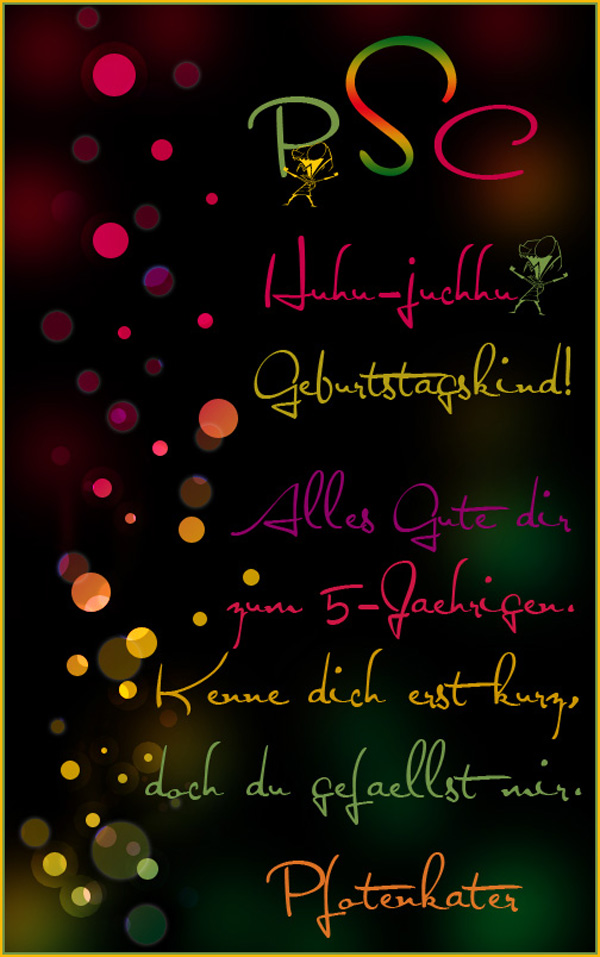 PSC
Huhu-juchhu
Geburtstagskind!
Alles Gute dir
zum 5-Jaehrigen.
Kenne dich erst kurz,
doch du gefaellst mir.
Pfotenkater